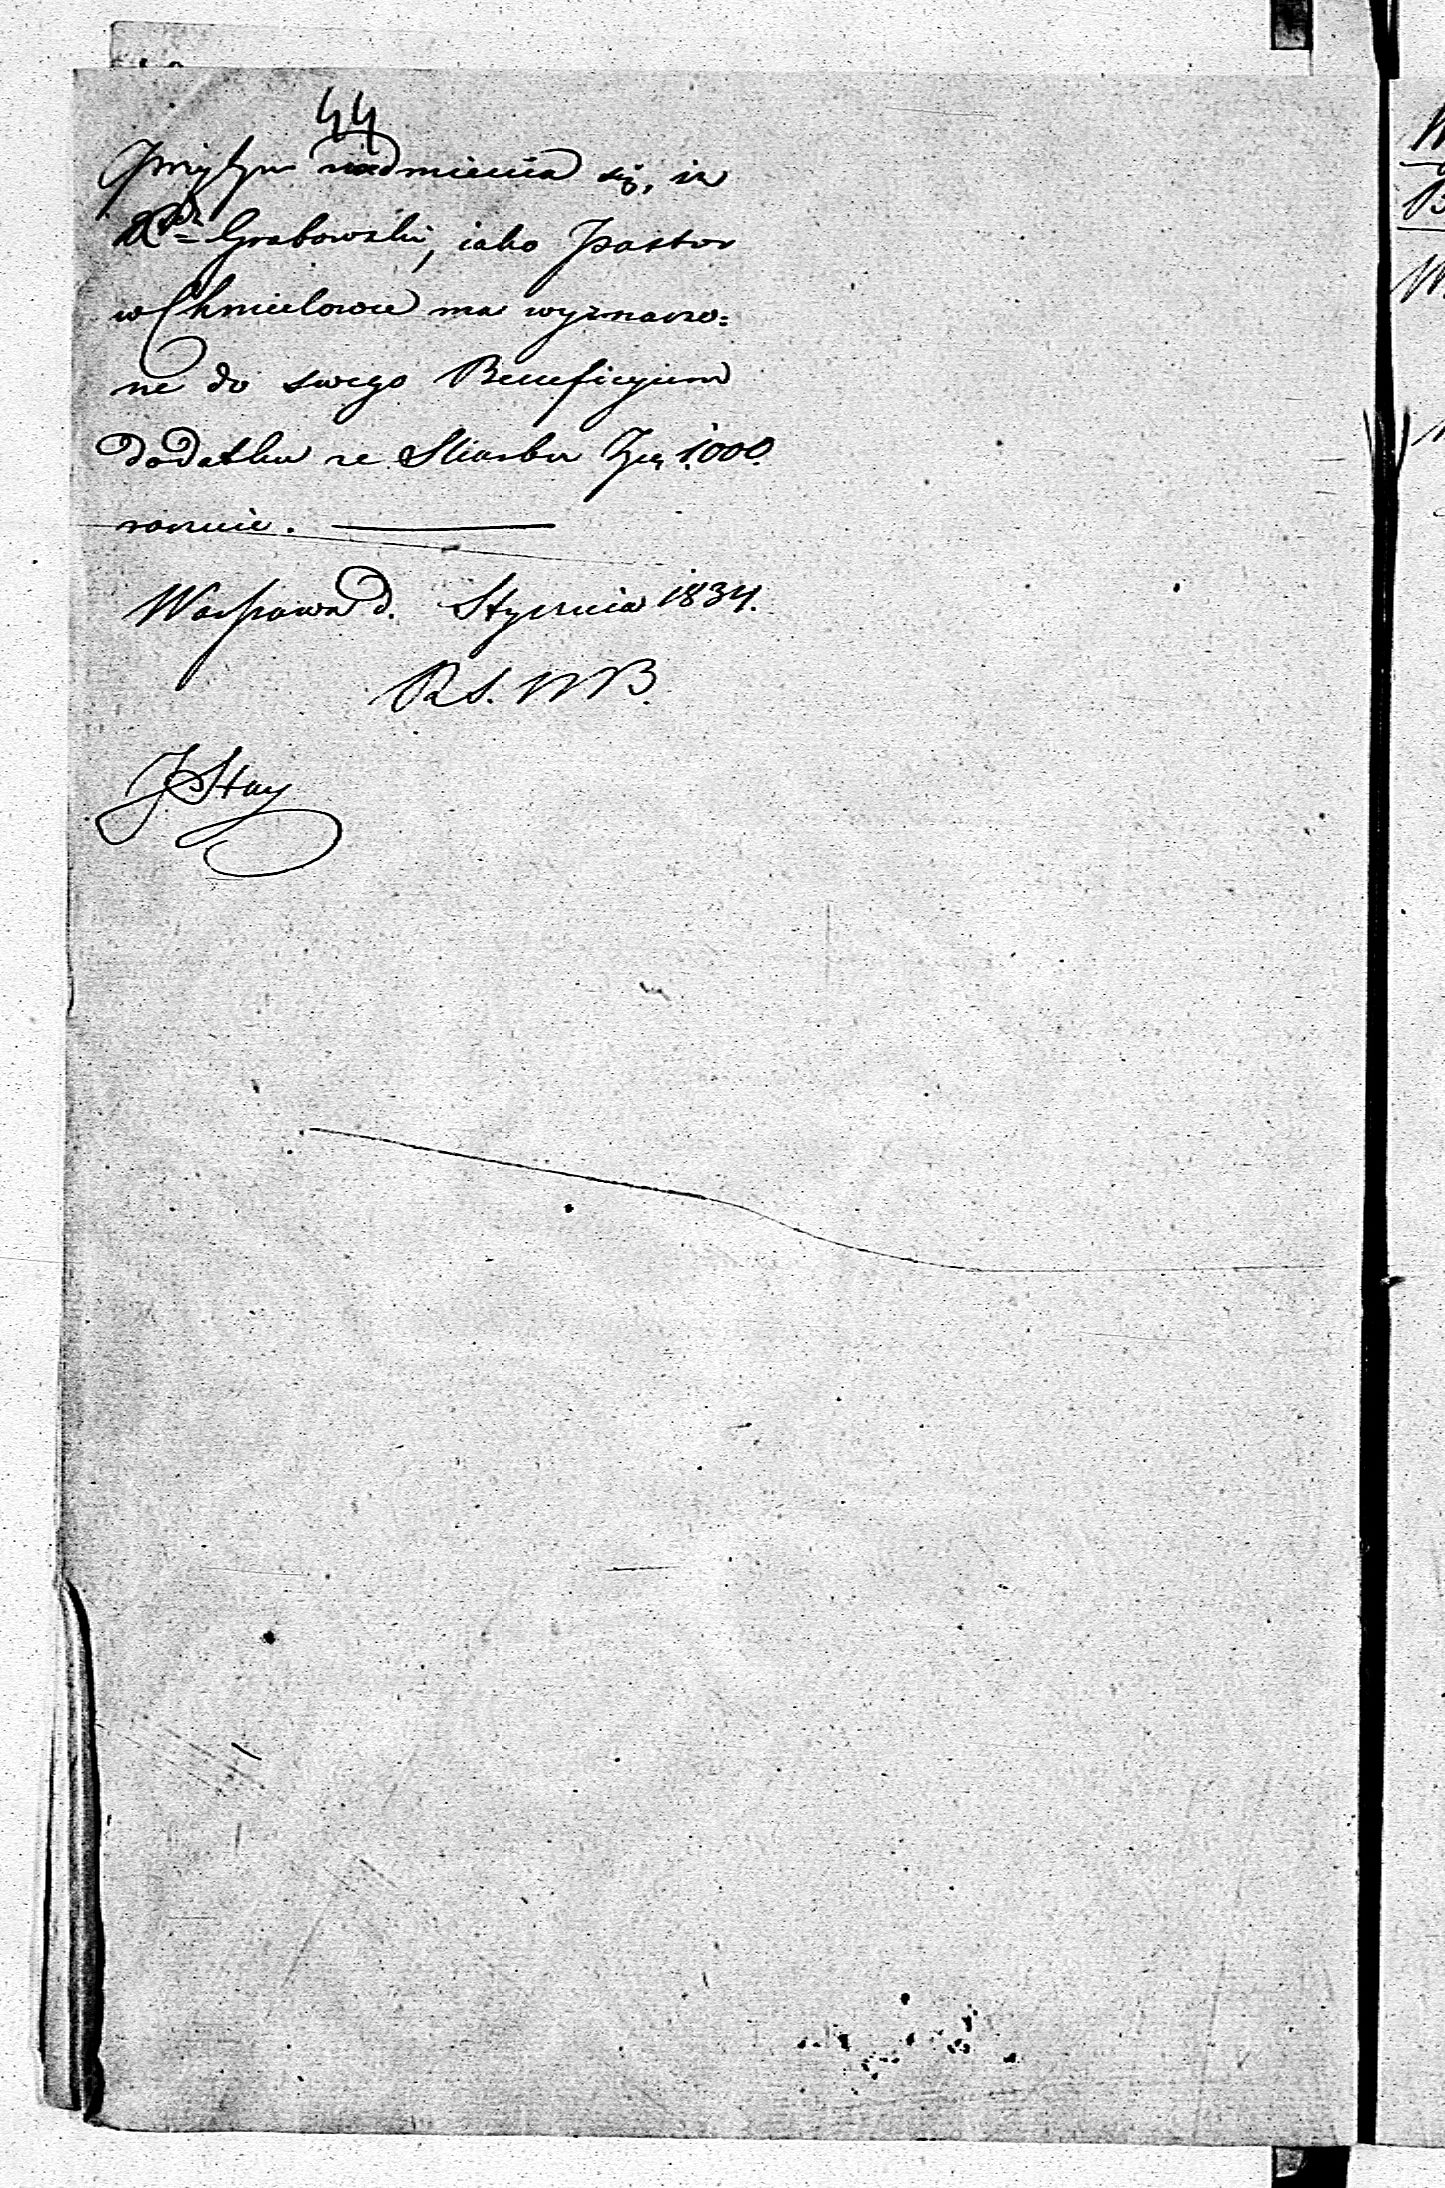 44
przytym nadmienia się, iż
Grabowski, iako Pastor
w Chmielowie ma wyznaczo=
ne do swego Beneficyum
dodatku ze Skarbu Złp. 1000.
rocznie.
Warszawa d. Stycznia 1834.